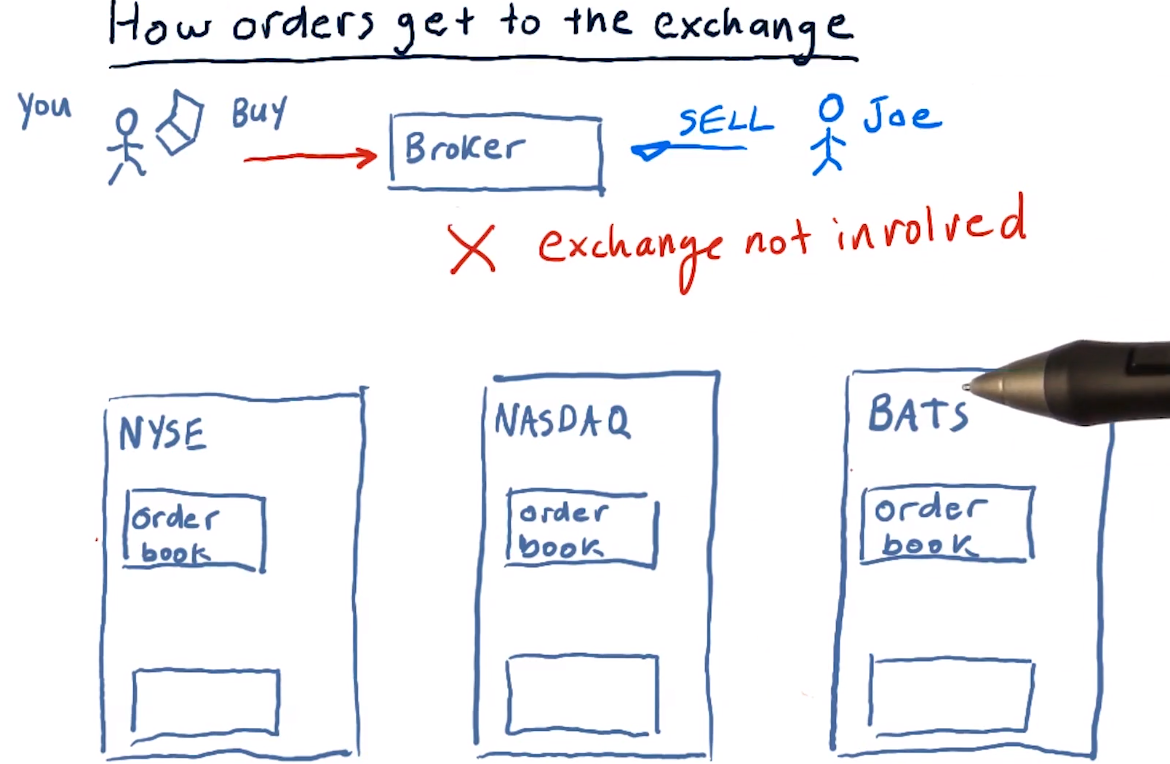 How orders get to the exchange
You
BUY
Broker
SELL
Joe
X exchange not involved
NYSE
NASDAQ
BATS
order
book
order
book
order
book